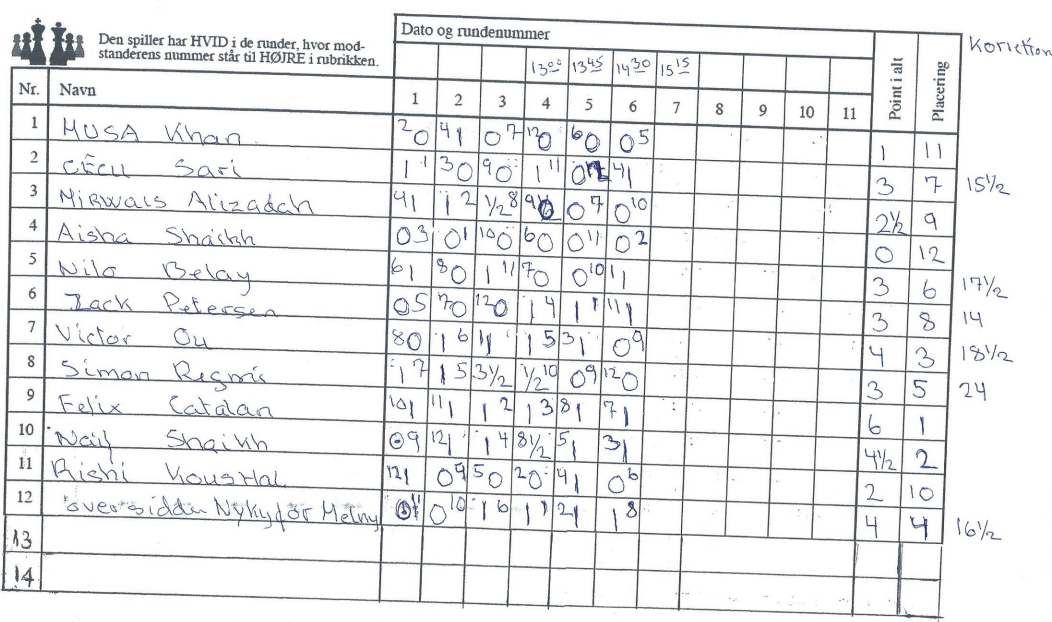 Den spiller har HVID i de runder, hvor mod-
standerens nummer står til HØJRE i rubrikken.
Dato og rundenummer
Point i alt
Placering
Koriction
13⁰⁰ 13⁴⁵ 14³⁰ 15¹⁵
Nr. Navn 1 2 3 4 5 6 7 8 9 10 11
1 MUSA Khan ²0 ⁴1 0⁷ ¹²0 ⁶0 0⁵ 1 11
2 Sari 1¹ ³0 ⁹0 1¹¹ 0¹² ⁴1 3 7 15½
3 Mirwais Alizadah ⁴1 1² ½⁸ ⁹0 0⁷ 0¹⁰ 2½ 9
4 Aisha Shaikh 0³ 0¹ ¹⁰0 ⁶0 0¹¹ 0² 0 12
5 Nilo Belay ⁶1 ⁸0 1¹¹ ⁷0 0¹⁰ ¹1 3 6 17½
6 Zack Petersen 0⁵ ⁷0 ¹²0 1⁴ 1¹ ¹¹1 3 8 14
7 Victor Ou ⁸0 1⁶ ¹1 1⁵ ³1 0⁹ 4 3 18½
8 Simon Regmis 1⁷ 1⁵ ³½ ½¹⁰ 0⁹ ¹²0 3 5 24
9 Felix Catalan ¹⁰1 ¹¹1 1² 1³ ⁸1 ⁷1 6 1
10 Naif Shaikh 0⁹ ¹²1 1⁴ ⁸½ ⁵1 ³1 4½ 2
11 Rishi Koushal ¹²1 0⁹ ⁵0 ²0 ⁴1 0⁶ 2 10
12 oversidder Nykyfor Melny 0¹¹ 0¹⁰ 1⁶ 1¹ ²1 1⁸ 4 4 16½
13
14